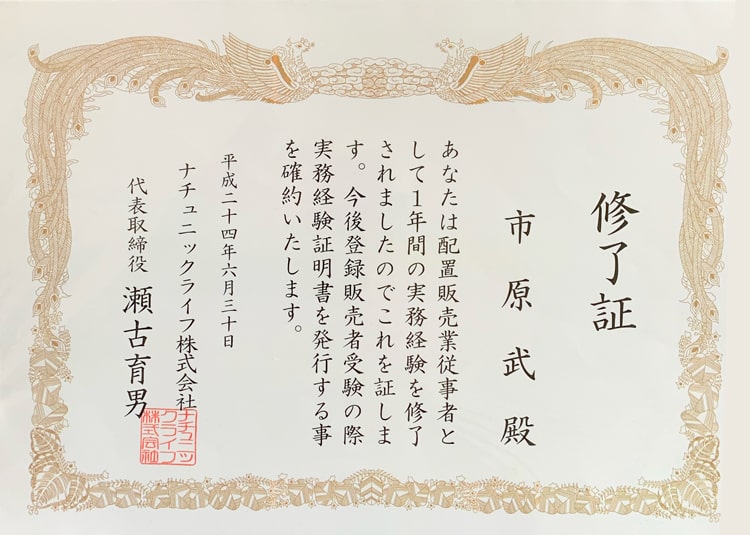 修了証
市原武殿
あなたは配置販売業従事者と
して1年間の実務経験を修了
されましたのでこれを証しま
す。今後登録販売者受験の際
実務経験証明書を発行する事
を確約いたします。
平成二十四年六月三十日
ナチュニックライフ株式会社
代表取締役 瀬古育男
ナチュニッ
クライフ
株式会社